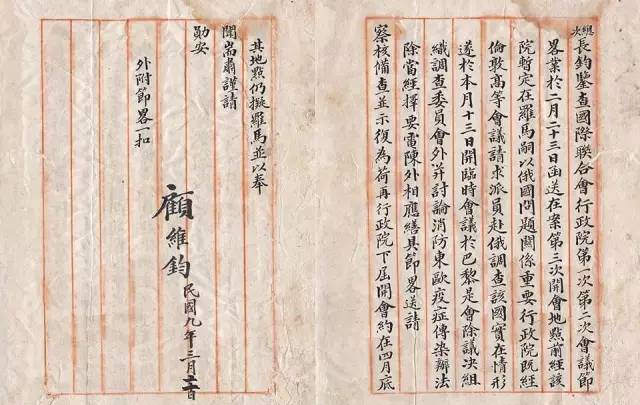 總次長鈞鑒查國際聯合會行政院第一次第二次會議節
畧業於二月二十三日函送在案第三次開會地點前經該
院暫定在羅馬嗣以俄國問題關係重要行政院既經
倫敦高等會議請求派員赴俄調查該國實在情形
遂於本月十三日開臨時會議於巴黎是會除議决組
織調查委員會外并討論消防東歐疫症傳染辦法
除當經擇要電陳外相應繕具節畧送請
察核備查並示復為荷再行政院下屆開會約在四月底
其地點仍擬羅馬並以奉
聞耑肅謹請
勛安
外附節畧一扣
顧維鈞
民國九年三月二十日